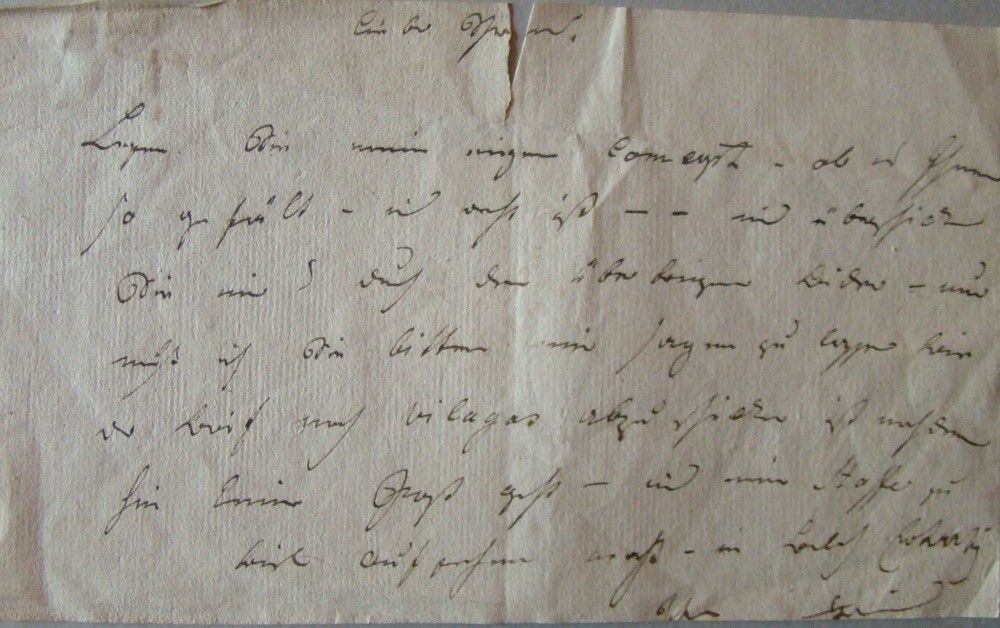 Liebe Freund.
Lesen Sie mein eigen Concept - ob es Ihnen
so gefält - und recht ist - - und überschiken
Sie mir durch den überbringer wieder - nur
muß ich Sie bitten mir sagen zu lassen wie
der Brief nach vilagos abzuschiken ist nachdem
hin keine Post geht - und eine Stafette zu
viel aufsehen macht - in
Ihr